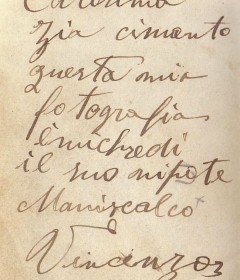 Carissima
Zia cimanto
questa mia
fotografia
il suo nipote
Maniscalco
Vincenzo